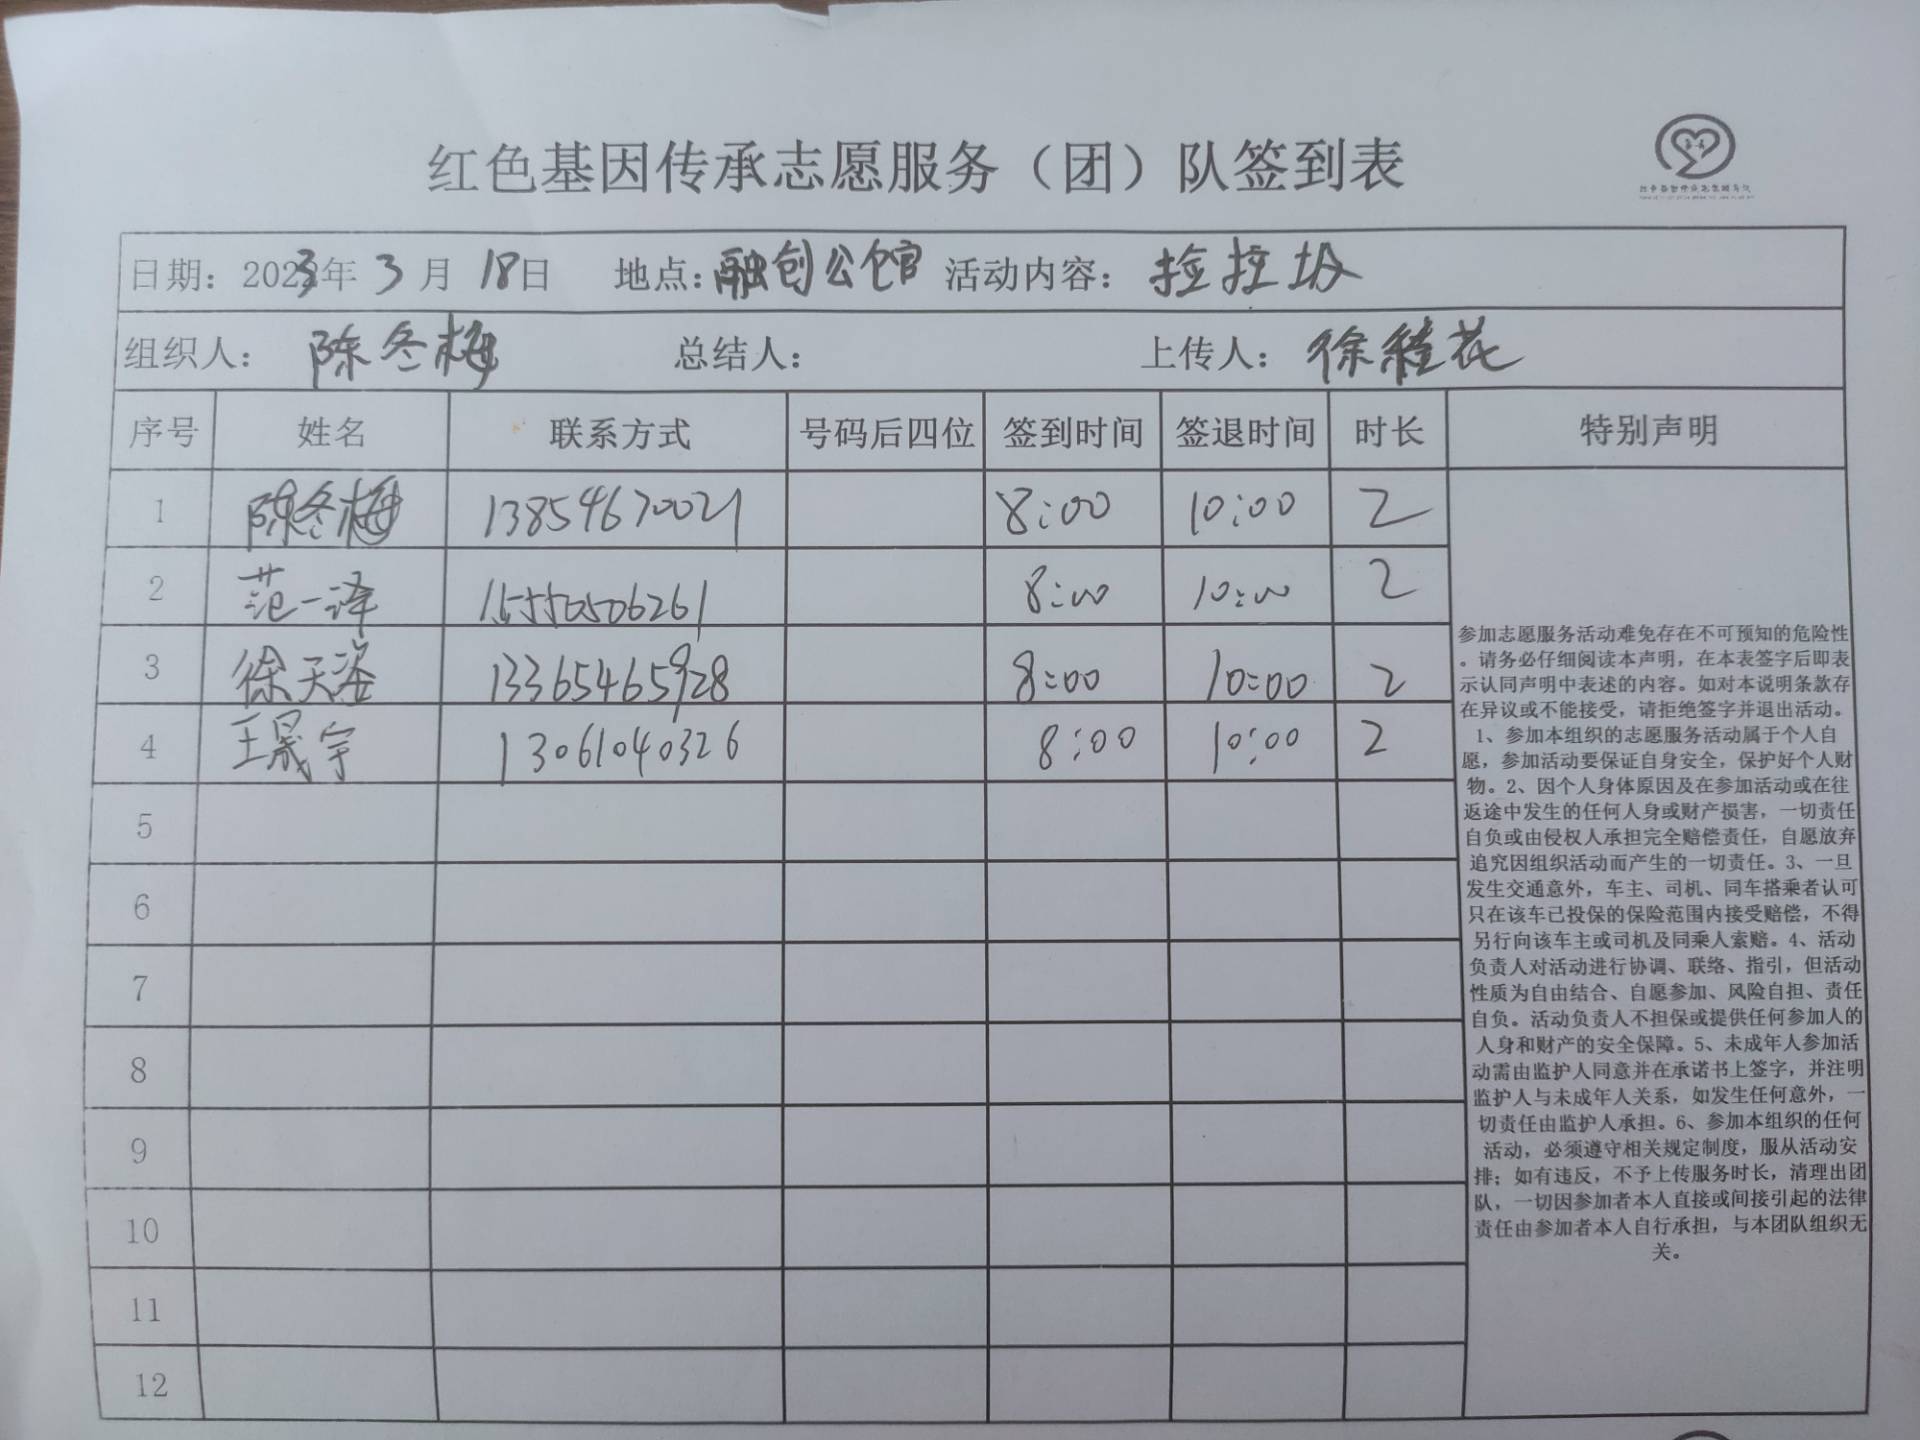 红色基因传承志愿服务（团）队签到表
日期：2023年 3月 18日 地点：融创公馆 活动内容：捡垃圾
组织人：陈冬梅 总结人： 上传人：徐桂花
序号 姓名 联系方式 号码后四位 签到时间 签退时间 时长 特别声明
1 陈冬梅 13854670021 8:00 10:00 2
2 范一泽 15550506261 8:00 10:00 2
3 徐天姿 13365465928 8:00 10:00 2
4 王晟宇 13061040326 8:00 10:00 2
5
6
7
8
9
10
11
12
参加志愿服务活动难免存在不可预知的危险性
。请务必仔细阅读本声明，在本表签字后即表
示认同声明中表述的内容。如对本说明条款存
在异议或不能接受，请拒绝签字并退出活动。
1、参加本组织的志愿服务活动属于个人自
愿，参加活动要保证自身安全，保护好个人财
物。2、因个人身体原因及在参加活动或在往
返途中发生的任何人身或财产损害，一切责任
自负或由侵权人承担完全赔偿责任，自愿放弃
追究因组织活动而产生的一切责任。3、一旦
发生交通意外，车主、司机、同车搭乘者认可
只在该车已投保的保险范围内接受赔偿，不得
另行向该车主或司机及同乘人索赔。4、活动
负责人对活动进行协调、联络、指引，但活动
性质为自由结合、自愿参加、风险自担、责任
自负。活动负责人不担保或提供任何参加人的
人身和财产的安全保障。5、未成年人参加活
动需由监护人同意并在承诺书上签字，并注明
监护人与未成年人关系，如发生任何意外，一
切责任由监护人承担。6、参加本组织的任何
活动，必须遵守相关规定制度，服从活动安
排；如有违反，不予上传服务时长，清理出团
队，一切因参加者本人直接或间接引起的法律
责任由参加者本人自行承担，与本团队组织无
关。